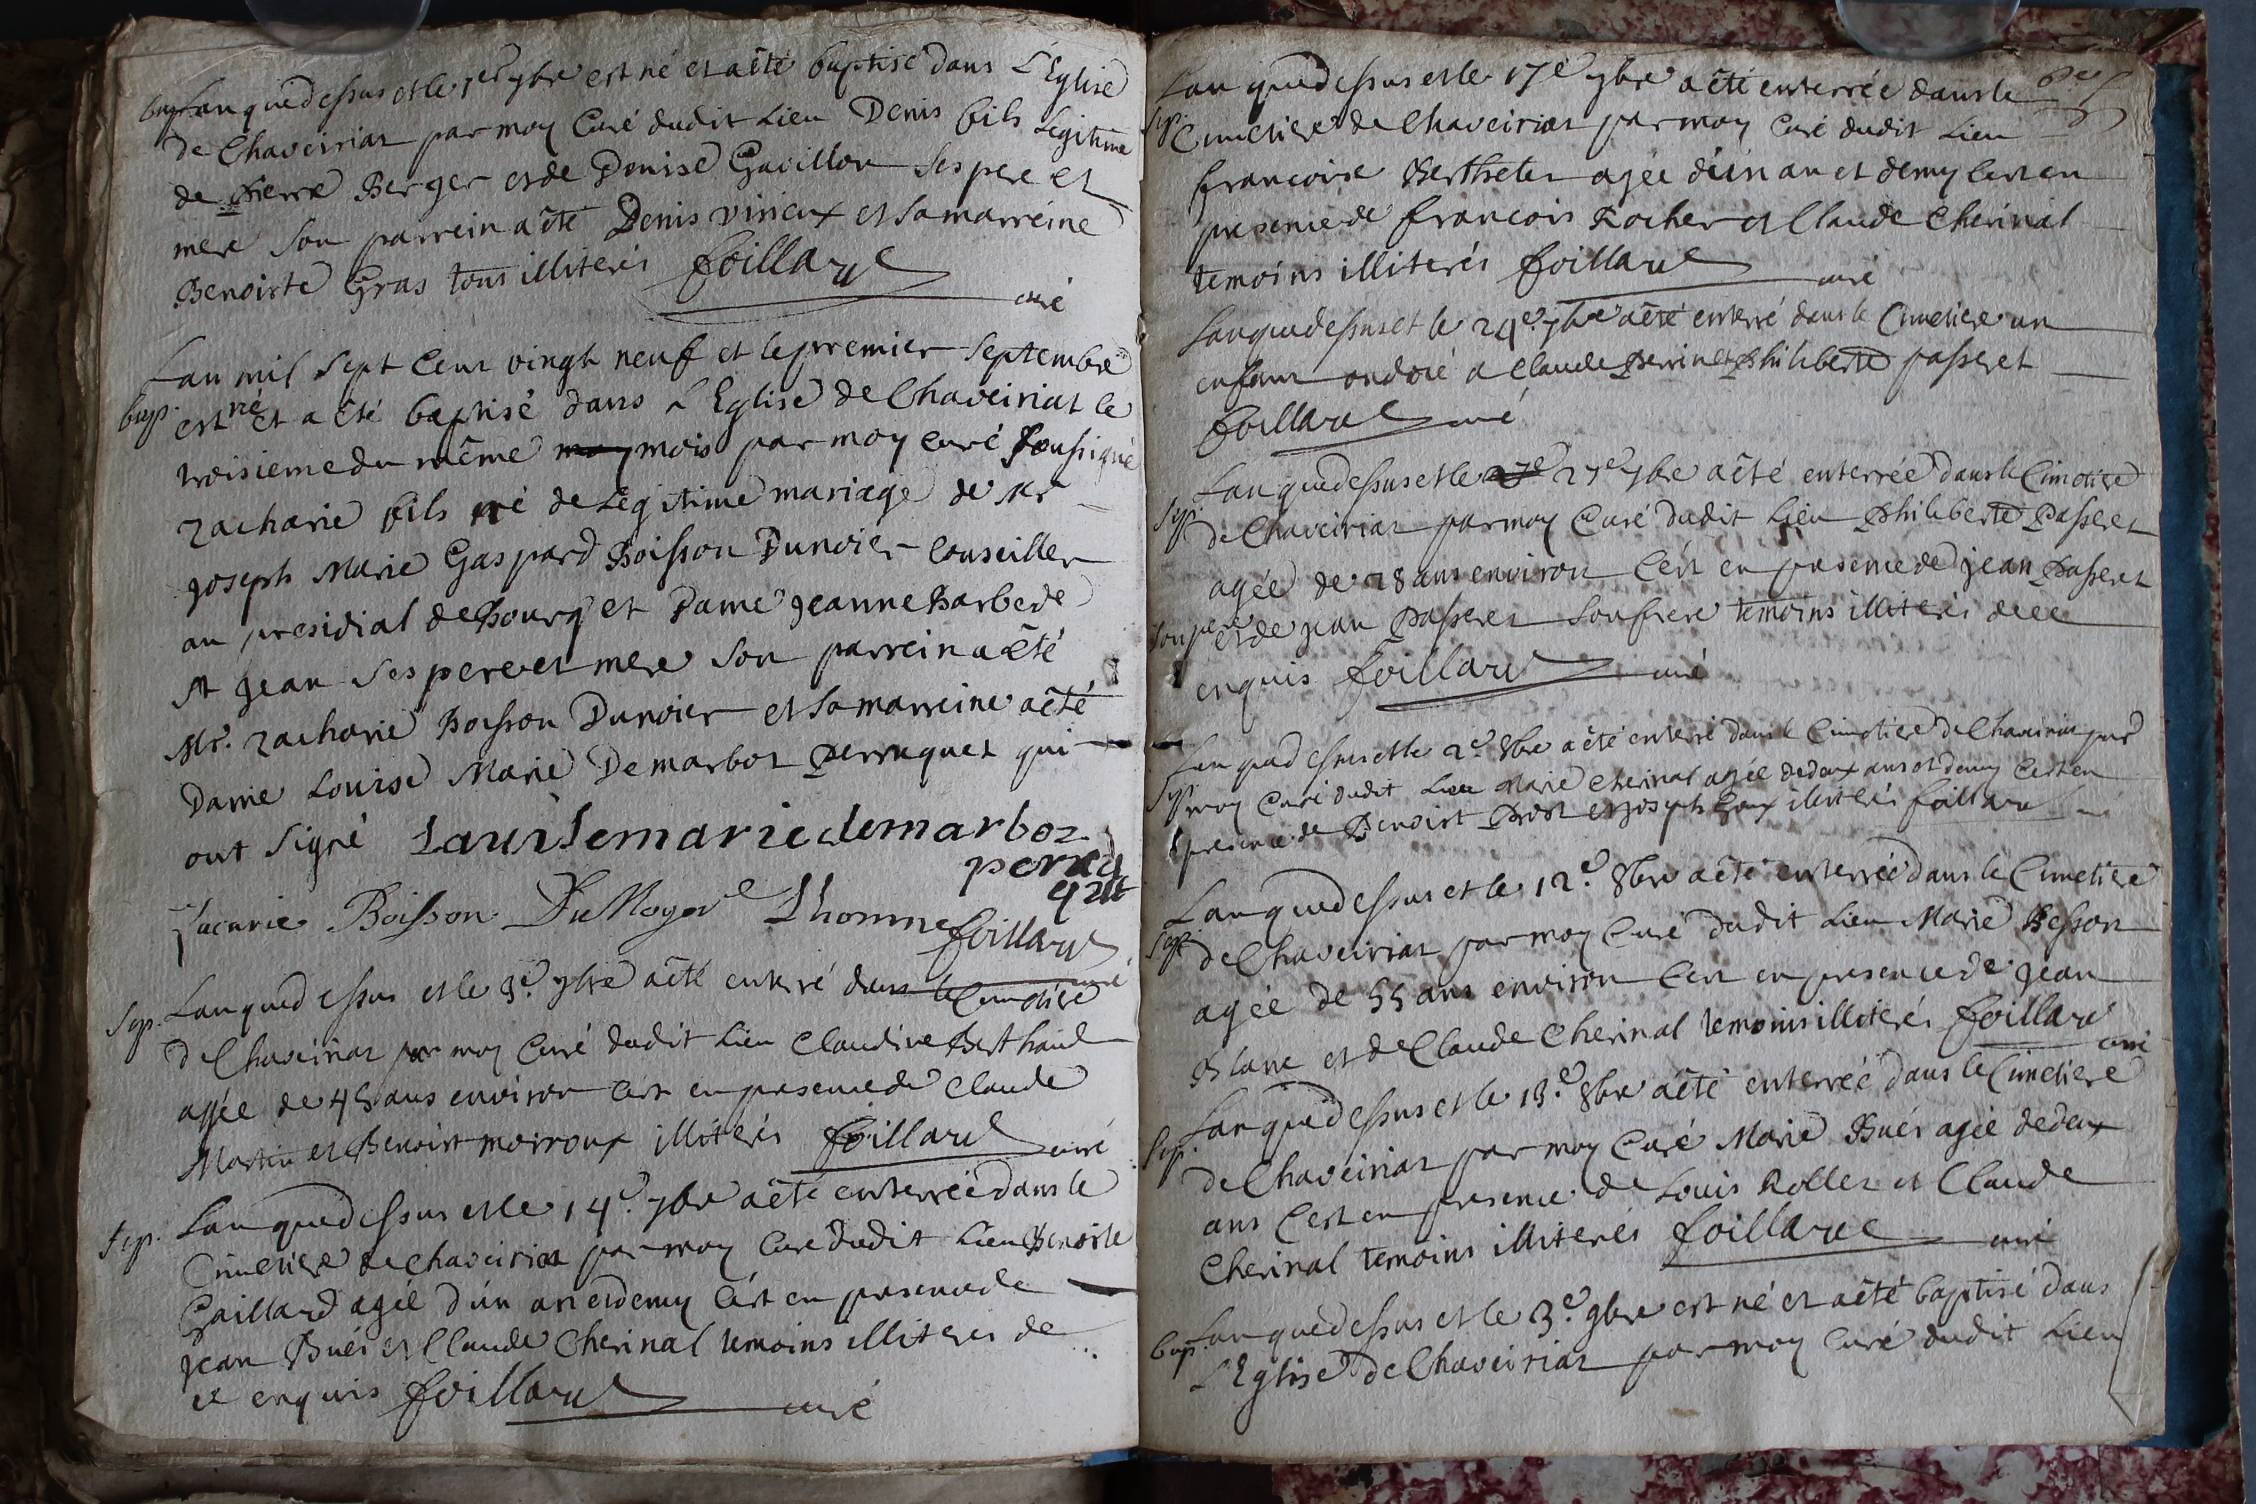 bap. Lan que dessus et le 1er 7bre est né et a êté baptisé dans L'Eglise
de Chaveiriat par moy Curé dudit Lieu Denis fils Legitime
de Pierre Berger et de Denise Gavillon ses pere et
mere son parrein a êté Denis vinieux et sa marreine
Benoiste Gras tous illiterés foillard
curé
Lan mil sept Cent vingt neuf et le premier Septembre
bap. est né et a êté baptisé dans L'Eglise de Chaveiriat le
troisieme du même moy mois par moy curé soussigné
zacharie fils né de Legitime mariage de Mr
joseph Marie Gaspard Boisson Dunoier Conseiller
au presidial de Bourg et Dame jeanne Barbe de
St jean ses pere et mere son parrein a êté
Mr. zacharie Boisson Dunoier et sa marreine a êté
Dame Louise Marie Demarboz Perruquet qui
ont signé Lauisemariedemarboz
perru
quet
zacarie Boisson Du Noyer Lhomme foillard
curé
Sep. Lan que dessus et le 3e. 7bre a êté enterré dans le Cimetiere
de Chaveiriat par moy Curé dudit Lieu Claudine Berthaud
agée de 45 ans environ C'est en presence de Claude
Martin et Benoist morroux illiterés foillard curé
Sep. Lan que dessus et le 14e. 7bre a êté enterreé dans le
Cimetiere de Chaveiriat par moy Curé dudit Lieu Benoiste
Gaillard agée d'ún an et demy C'est en presence de
jean Buër et Claude Cherinal temoins illiterés de
ce enquis foillard curé
Lan que dessus et le 17e 7bre a êté enterrée dans le
Sep. Cimetiere de Chaveiriat par moy Curé dudit Lieu
francoise Berthelet agée d'ún an et demy C'est en
presence de francois Rocher et Claude Cherinal
temoins illiterés foillard curé
Lan que dessus et le 24e. 7bre a êté enterré dans le Cimetiere un
enfant ondoié a Claude Perrin et Philiberte passeret
foillard curé
Lan que dessus et le 27e 7bre a êté enterrée dans le Cimetiere
Sep. de Chaveiriat par moy Curé dudit Lieu Philiberte Passeret
agée de 28 ans environ C'est en presence de jean Passeret
son pere et de jean Passeret son frere temoins illiterés de ce
enquis foillard curé
Lan que dessus et le 2e. 8bre a êté enterré dans le Cimetiere de Chaveiriat par
Sep. moy Curé dudit Lieu Marie Cherinal agée de deux ans et demy C'est en
presence de Benoist Prost et joseph Goux illiterés foillard
Lan que dessus et le 12e. 8bre a êté enterreé dans le Cimetiere
Sep. de Chaveiriat par moy Curé dudit Lieu Marie Besson
agée de 55 ans environ C'est en presence de jean
Blanc et de Claude Cherinal temoins illiterés foillard
curé
Lan que dessus et le 13e. 8bre a êté enterreé dans le Cimetiere
Sep. de Chaveiriat par moy Curé Marie Buër agée de deux
ans C'est en presence de Louis Rollet et Claude
Cherinal temoins illiterés foillard curé
Lan que dessus et le 3e. 9bre est né et a êté baptisé dans
bap. L'Eglise de Chaveiriat par moy Curé dudit Lieu